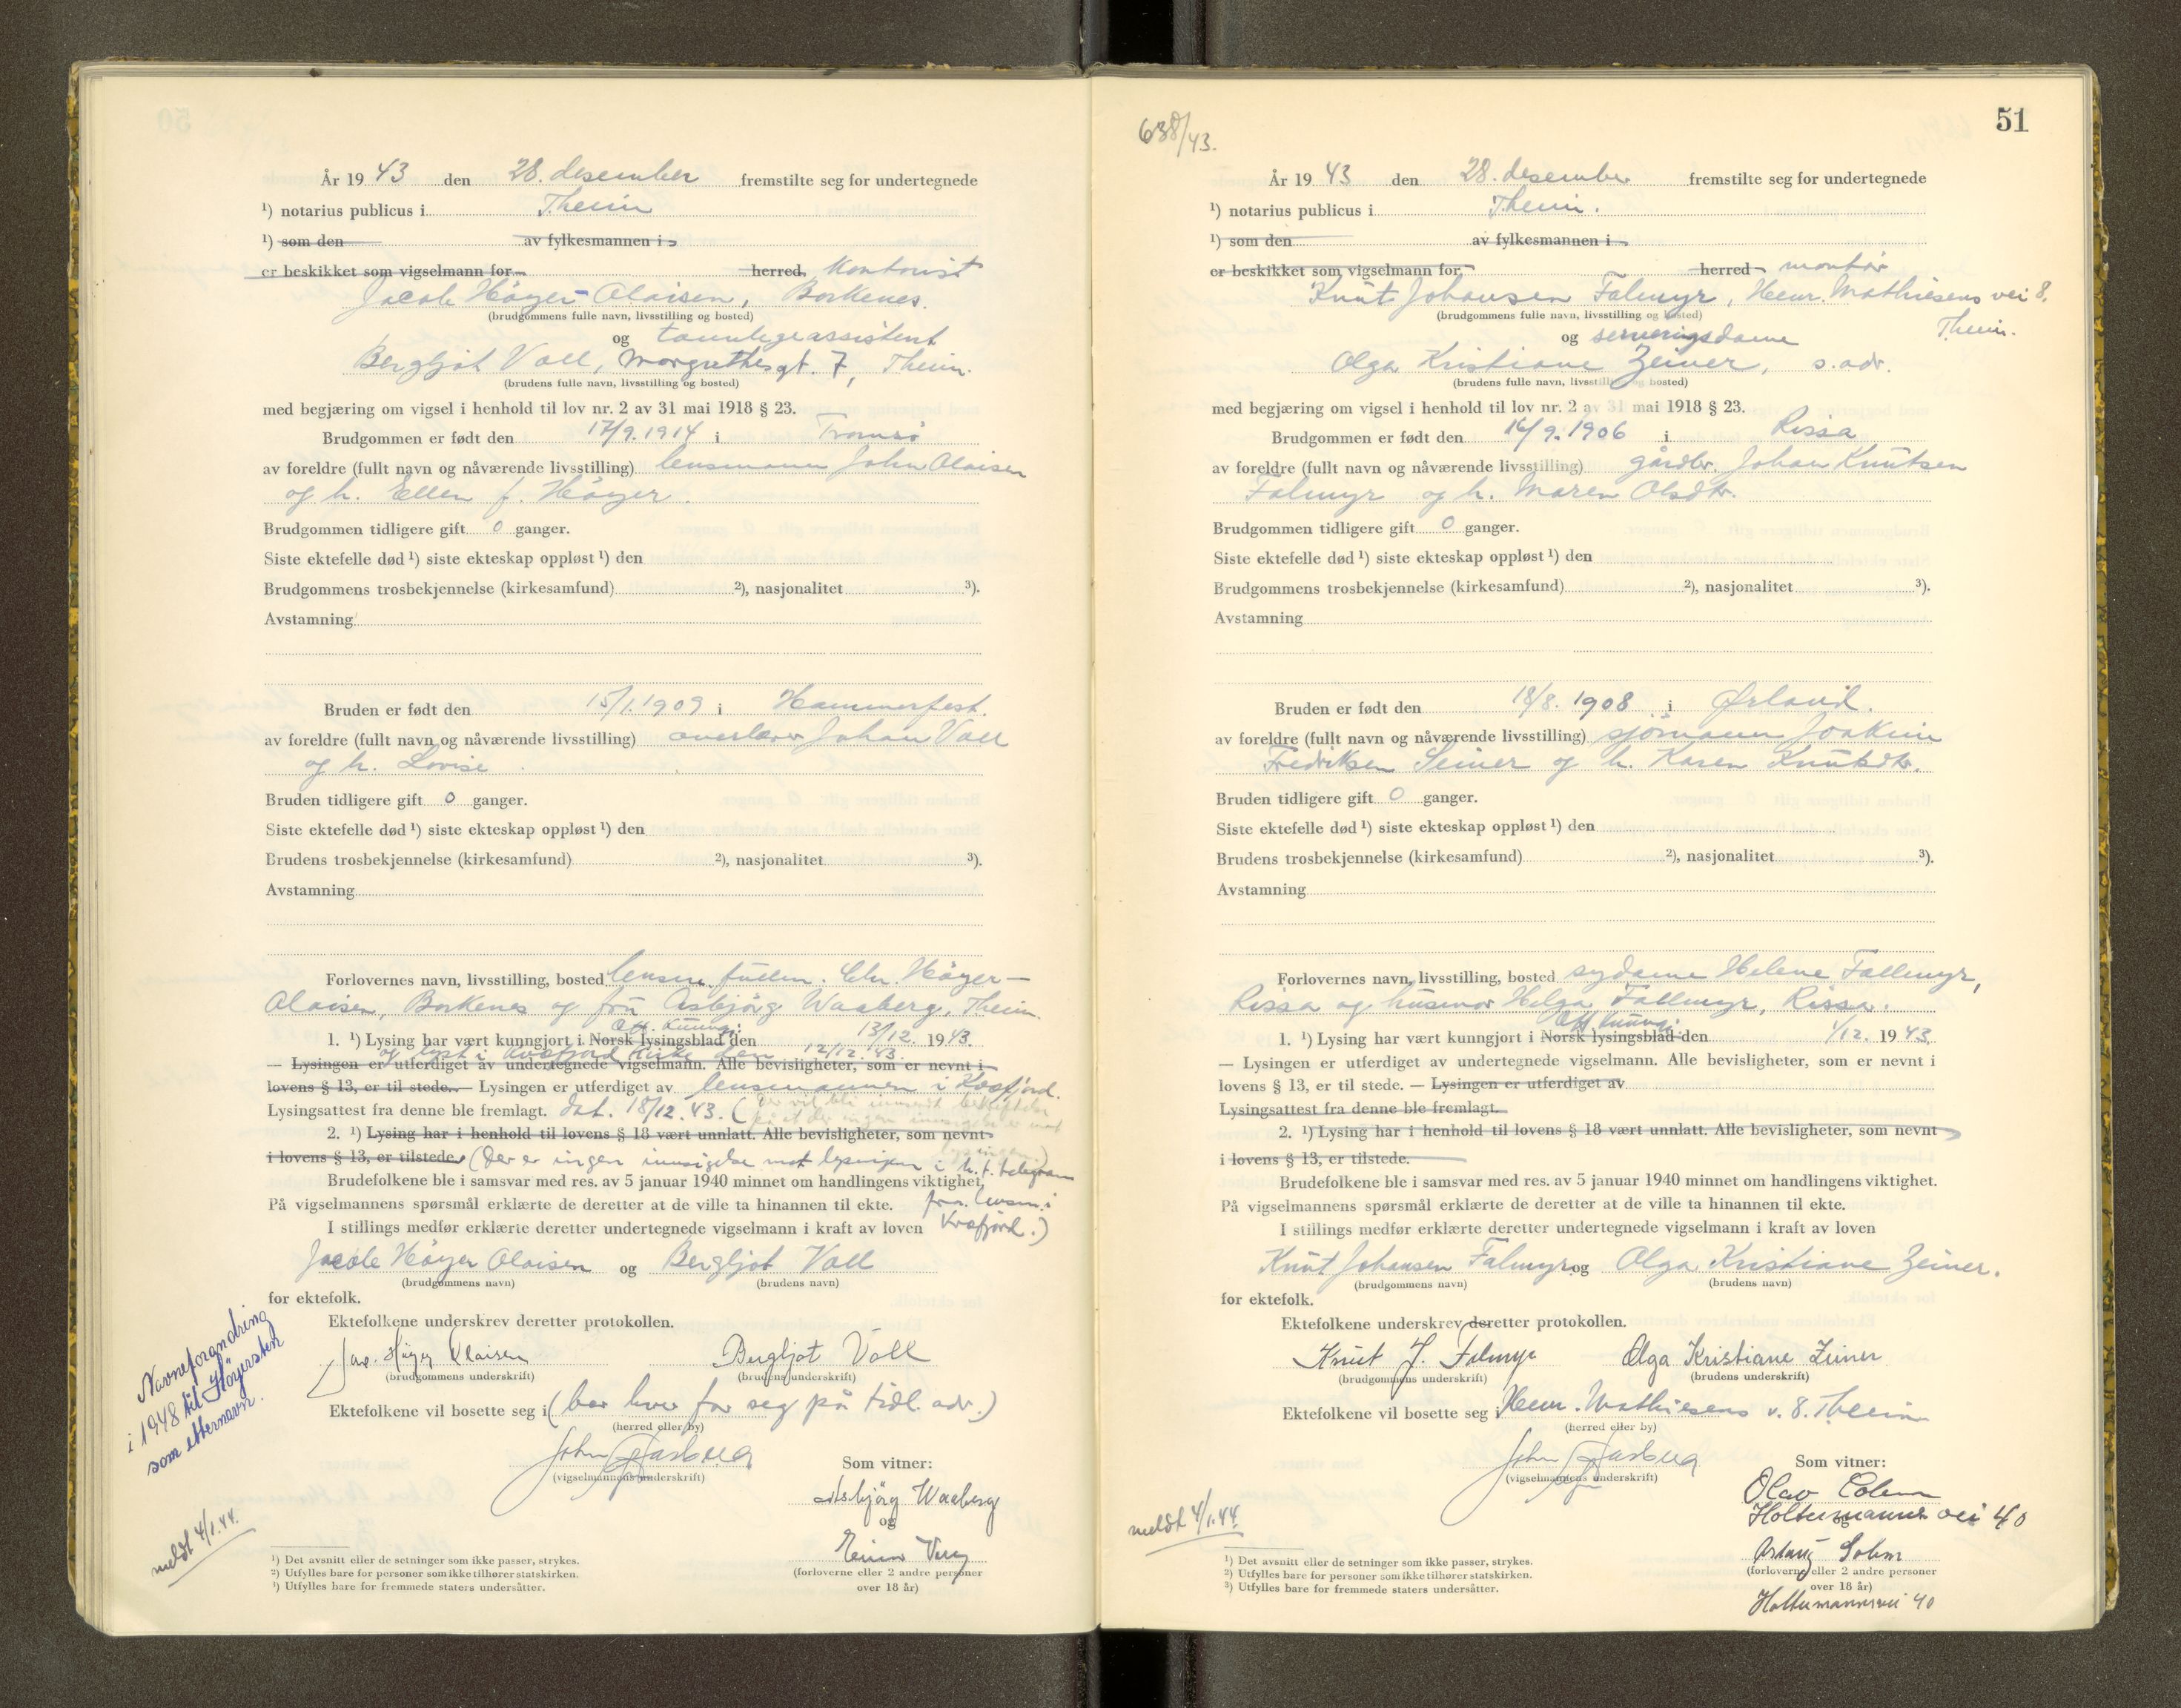 År 1943 den 28. desember fremstilte seg for undertegnede
¹) notarius publicus i Theim
¹) som den av fylkesmannen i
er beskikket som vigselmann for herred, Kontorist
Jacob Höyer-Olaisen, Borkenes.
(brudgommens fulle navn, livsstilling og bosted)
og tannlegeassistent
Bergljot Voll, Margrethesgt. 7, Theim.
(brudens fulle navn, livsstilling og bosted)
med begjæring om vigsel i henhold til lov nr. 2 av 31 mai 1918 § 23.
Brudgommen er født den 17/9. 1914 i Tromsö
av foreldre (fullt navn og nåværende livsstilling) lensmann John Olaisen
og h. Ellen f. Höyer.
Brudgommen tidligere gift 0 ganger.
Siste ektefelle død ¹) siste ekteskap oppløst ¹) den
Brudgommens trosbekjennelse (kirkesamfund) ²), nasjonalitet ³).
Avstamning
Bruden er født den 15/1. 1909 i Hammerfest.
av foreldre (fullt navn og nåværende livsstilling) overlærer Johan Voll
og h. Lovise
Bruden tidligere gift 0 ganger.
Siste ektefelle død ¹) siste ekteskap oppløst ¹) den
Brudens trosbekjennelse (kirkesamfund) ²), nasjonalitet ³).
Avstamning
Forlovernes navn, livsstilling, bosted lensm. fullm. Chr. Höyer-
Olaisen, Borkenes og fru Asbjörg Waaberg, Theim.
Off. kunngj.
1. ¹) Lysing har vært kunngjort i Norsk lysingsblad den 13/12. 1943.
og lyst i Kvæfjord kirke den 12/12. 43.
— Lysingen er utferdiget av undertegnede vigselmann. Alle bevisligheter, som er nevnt i
lovens § 13, er til stede. — Lysingen er utferdiget av lensmannen i Kvæfjord.
Lysingsattest fra denne ble fremlagt. dat. 18/12. 43.
2. ¹) Lysing har i henhold til lovens § 18 vært unnlatt. Alle bevisligheter, som nevnt
i lovens § 13, er tilstede. (Der er ingen innsigelse mot lysingen i h.t. telegram
Brudefolkene ble i samsvar med res. av 5 januar 1940 minnet om handlingens viktighet.
På vigselmannens spørsmål erklærte de deretter at de ville ta hinannen til ekte. fra lensm. i
I stillings medfør erklærte deretter undertegnede vigselmann i kraft av loven Kvæfjord.)
Jacob Höyer Olaisen og Bergljot Voll
(brudgommens navn) (brudens navn)
for ektefolk.
Ektefolkene underskrev deretter protokollen.
Jac. Höyer Olaisen Bergljot Voll
(brudgommens underskrift) (brudens underskrift)
Ektefolkene vil bosette seg i (bor hver for seg på tidl. adr.)
(herred eller by)
(vigselmannens underskrift)
Som vitner:
Asbjörg Waaberg
og
(forloverne eller 2 andre personer
over 18 år)
Navneforandring
i 1948 til Höyersten
som etternavn.
meldt 4/1. 44.
¹) Det avsnitt eller de setninger som ikke passer, strykes.
²) Utfylles bare for personer som ikke tilhører statskirken.
³) Utfylles bare for fremmede staters undersåtter.
638/43.
51
År 1943 den 28. desember fremstilte seg for undertegnede
¹) notarius publicus i Theim.
¹) som den av fylkesmannen i
er beskikket som vigselmann for herred montør
Knut Johansen Falmyr, Henr. Mathiesens vei 8.
(brudgommens fulle navn, livsstilling og bosted)
Theim.
og serveringsdame
Olga Kristiane Zeiner, s. adr.
(brudens fulle navn, livsstilling og bosted)
med begjæring om vigsel i henhold til lov nr. 2 av 31 mai 1918 § 23.
Brudgommen er født den 16/9. 1906 i Rissa
av foreldre (fullt navn og nåværende livsstilling) gårdbr. Johan Knutsen
Falmyr og h. Maren Olsdtr.
Brudgommen tidligere gift 0 ganger.
Siste ektefelle død ¹) siste ekteskap oppløst ¹) den
Brudgommens trosbekjennelse (kirkesamfund) ²), nasjonalitet ³).
Avstamning
Bruden er født den 18/8. 1908 i Ørland.
av foreldre (fullt navn og nåværende livsstilling) sjömann Joakim
Fredriksen Seiner og h. Karen Knutsdtr.
Bruden tidligere gift 0 ganger.
Siste ektefelle død ¹) siste ekteskap oppløst ¹) den
Brudens trosbekjennelse (kirkesamfund) ²), nasjonalitet ³).
Avstamning
Forlovernes navn, livsstilling, bosted sydame Helene Fallmyr,
Rissa og husmor Helga Fallmyr, Rissa.
Off kunngj.
1. ¹) Lysing har vært kunngjort i Norsk lysingsblad den 1/12. 1943
— Lysingen er utferdiget av undertegnede vigselmann. Alle bevisligheter, som er nevnt i
lovens § 13, er til stede. — Lysingen er utferdiget av
Lysingsattest fra denne ble fremlagt.
2. ¹) Lysing har i henhold til lovens § 18 vært unnlatt. Alle bevisligheter, som nevnt
i lovens § 13, er tilstede.
Brudefolkene ble i samsvar med res. av 5 januar 1940 minnet om handlingens viktighet.
På vigselmannens spørsmål erklærte de deretter at de ville ta hinannen til ekte.
I stillings medfør erklærte deretter undertegnede vigselmann i kraft av loven
Knut Johansen Falmyr og Olga Kristiane Zeiner.
(brudgommens navn) (brudens navn)
for ektefolk.
Ektefolkene underskrev deretter protokollen.
Knut J. Falmyr Olga Kristiane Zeiner
(brudgommens underskrift) (brudens underskrift)
Ektefolkene vil bosette seg i Henr. Mathiesens v. 8. Theim
(herred eller by)
(vigselmannens underskrift)
Som vitner:
Olav
Holtermanns vei 40
og
Solem
(forloverne eller 2 andre personer
over 18 år)
Holtermannsvei 40
meldt 4/1. 44.
¹) Det avsnitt eller de setninger som ikke passer, strykes.
²) Utfylles bare for personer som ikke tilhører statskirken.
³) Utfylles bare for fremmede staters undersåtter.